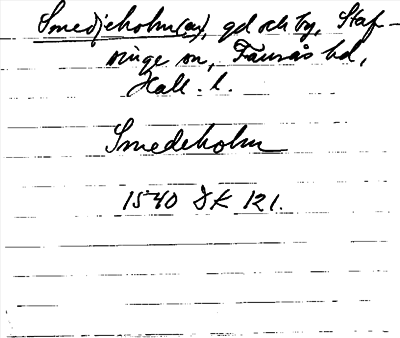 Smedjeholm(en), gd och by, Staf-
singe sn, Faurås hd,
Hall. l.
Smedeholm
1540 DK 121.